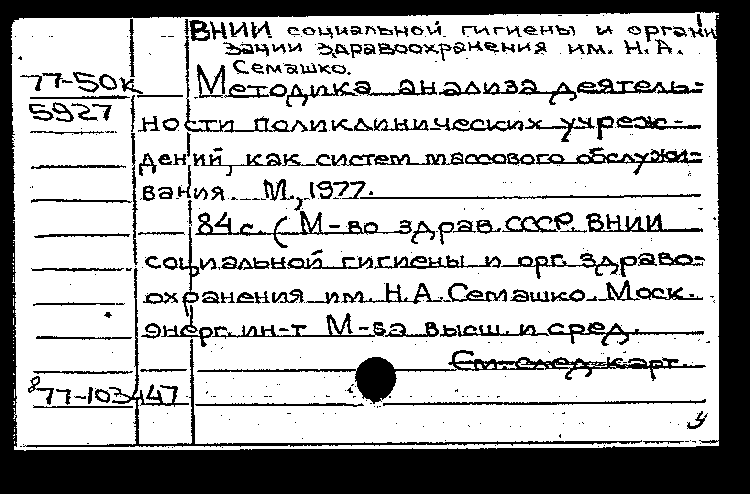 ВНИИ социальной гигиены и органи
зации здравоохранения им. Н.А.
Семашко.
77-50к
Методика анализа деятель=
5927
ности поликлинических учреж-
дений, как систем массового обслужи=
вания. М., 1977.
84 с. (М-во здрав. СССР. ВНИИ
социальной гигиены и орг. здраво=
охранения им. Н.А. Семашко. Моск.
энерг. ин-т М-ва высш. и сред.
См. след. карт.
77-103447